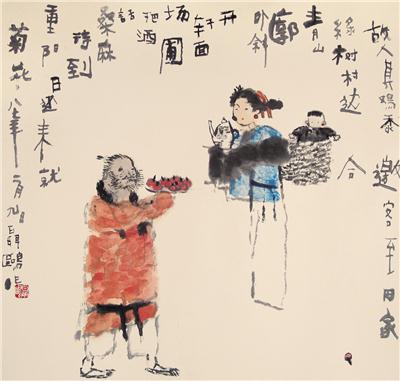 故人具鸡黍邀客至田家
绿树村边合
青山
廓
外斜
开
轩面
场圃
把酒
话
桑麻
待到
重阳日还来就
菊花